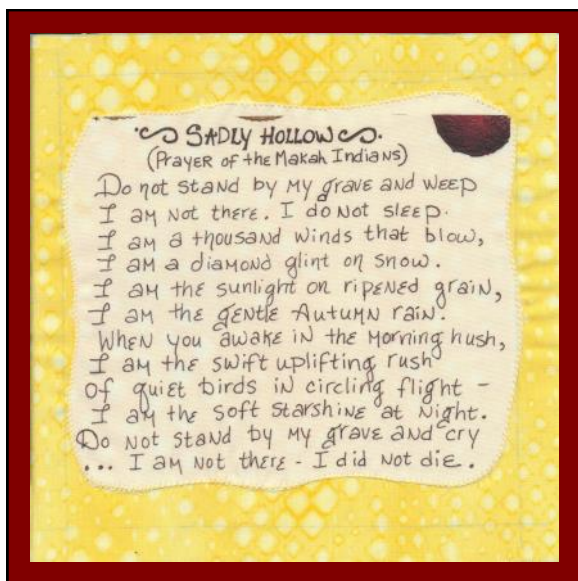 SADLY HOLLOW
(Prayer of the Makah Indians)
Do not stand by my grave and weep
I am not there. I do not sleep.
I am a thousand winds that blow,
I am a diamond glint on snow.
I am the sunlight on ripened grain,
I am the gentle Autumn rain.
When you awake in the morning hush,
I am the swift uplifting rush
Of quiet birds in circling flight -
I am the soft starshine at night.
Do not stand by my grave and cry
... I am not there - I did not die.